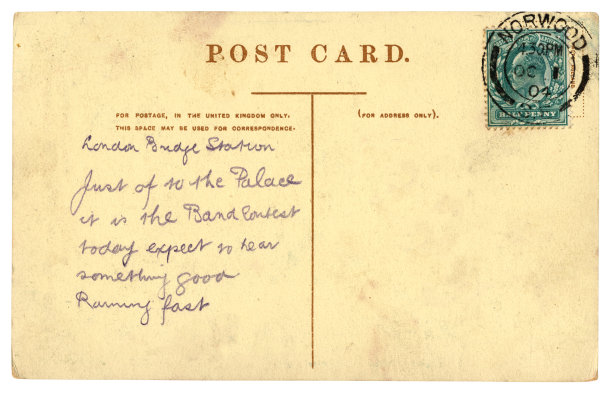 POST CARD.
FOR POSTAGE, IN THE UNITED KINGDOM ONLY,
THIS SPACE MAY BE USED FOR CORRESPONDENCE.
(FOR ADDRESS ONLY).
London Bridge Station
Just of to the Palace
it is the Band Contest
today expect to hear
something good
Raining fast
NORWOOD
7.30PM
OC 1
04
HALFPENNY